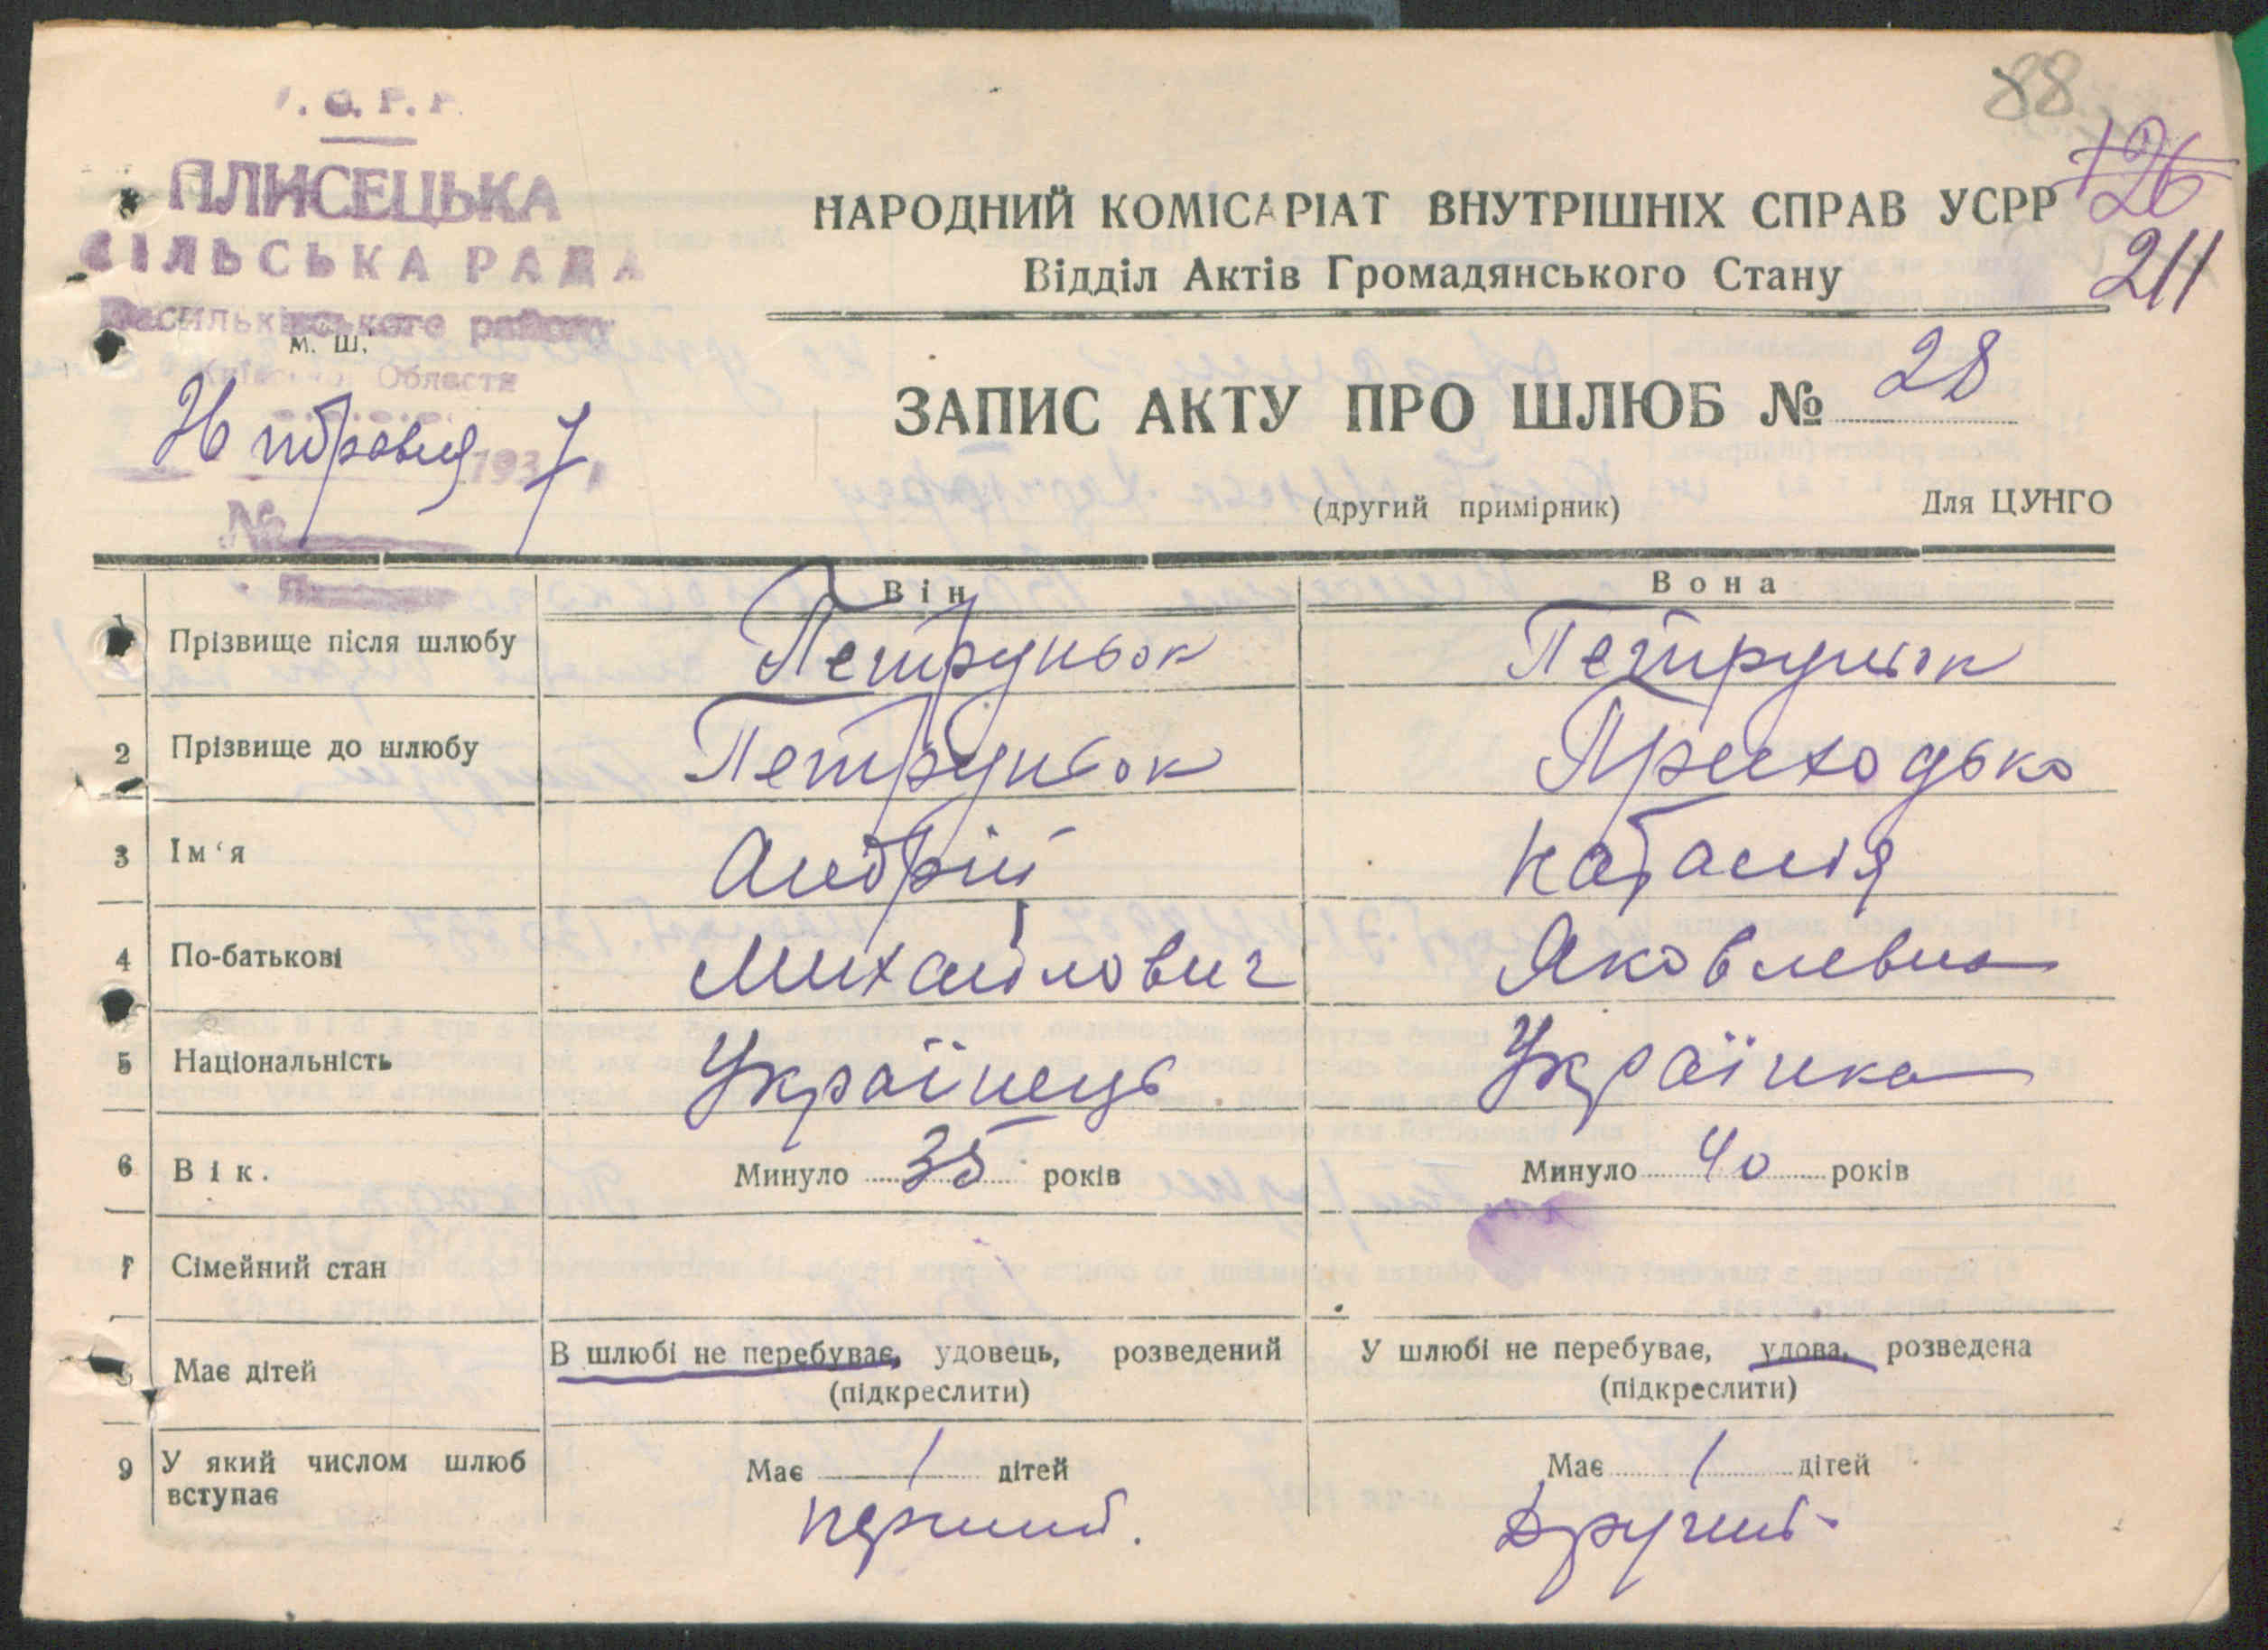 88
126
211
У. С. Р. Р.
ПЛИСЕЦЬКА
СІЛЬСЬКА РАДА
Васильківського району
М. Ш.
Київської Области
193 7 р
№
НАРОДНИЙ КОМІСАРІАТ ВНУТРІШНІХ СПРАВ УСРР
Відділ Актів Громадянського Стану
ЗАПИС АКТУ ПРО ШЛЮБ № 28
(другий примірник) Для ЦУНГО
Він Вона
1 Прізвище після шлюбу Петруньок Петруньок
2 Прізвище до шлюбу Петруньок Приходько
3 Ім'я Андрій Наталія
4 По-батькові Михайлович Яковлевна
5 Національність Українець Українка
6 Вік. Минуло 35 років Минуло 40 років
7 Сімейний стан
8 Має дітей В шлюбі не перебуває, удовець, розведений У шлюбі не перебуває, удова, розведена
(підкреслити) (підкреслити)
9 У який числом шлюб вступає Має / дітей Має / дітей
перший. Другий